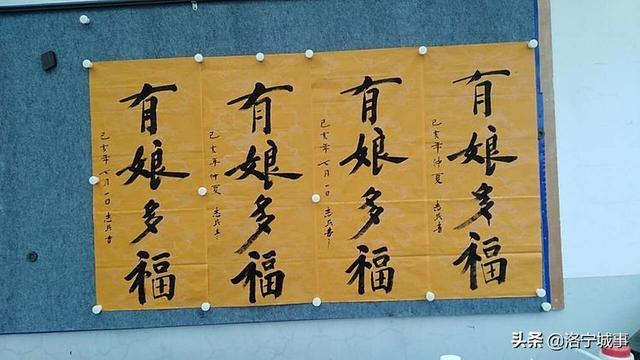 有娘多福
己亥年仲夏 志兵书
有娘多福
己亥年七月一日 志兵书
有娘多福
己亥年仲夏 志兵书
有娘多福
己亥年七月一日 志兵书
头条 @洛宁城事